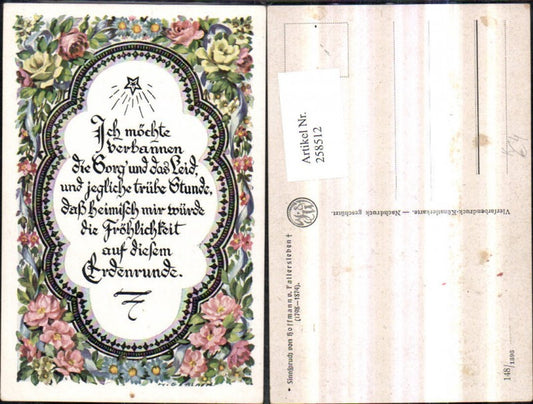 Ich möchte
verbannen
die Sorg' und das Leid,
und jegliche trübe Stunde,
daß heimisch mir würde
die Fröhlichkeit
auf diesem
Erdenrunde.
Artikel Nr.
258512
Vierfarbendruck-Künstlerkarte. — Nachdruck geschützt.
Sinnspruch von Hoffmann v. Fallersleben †
(1798–1874).
148/1393